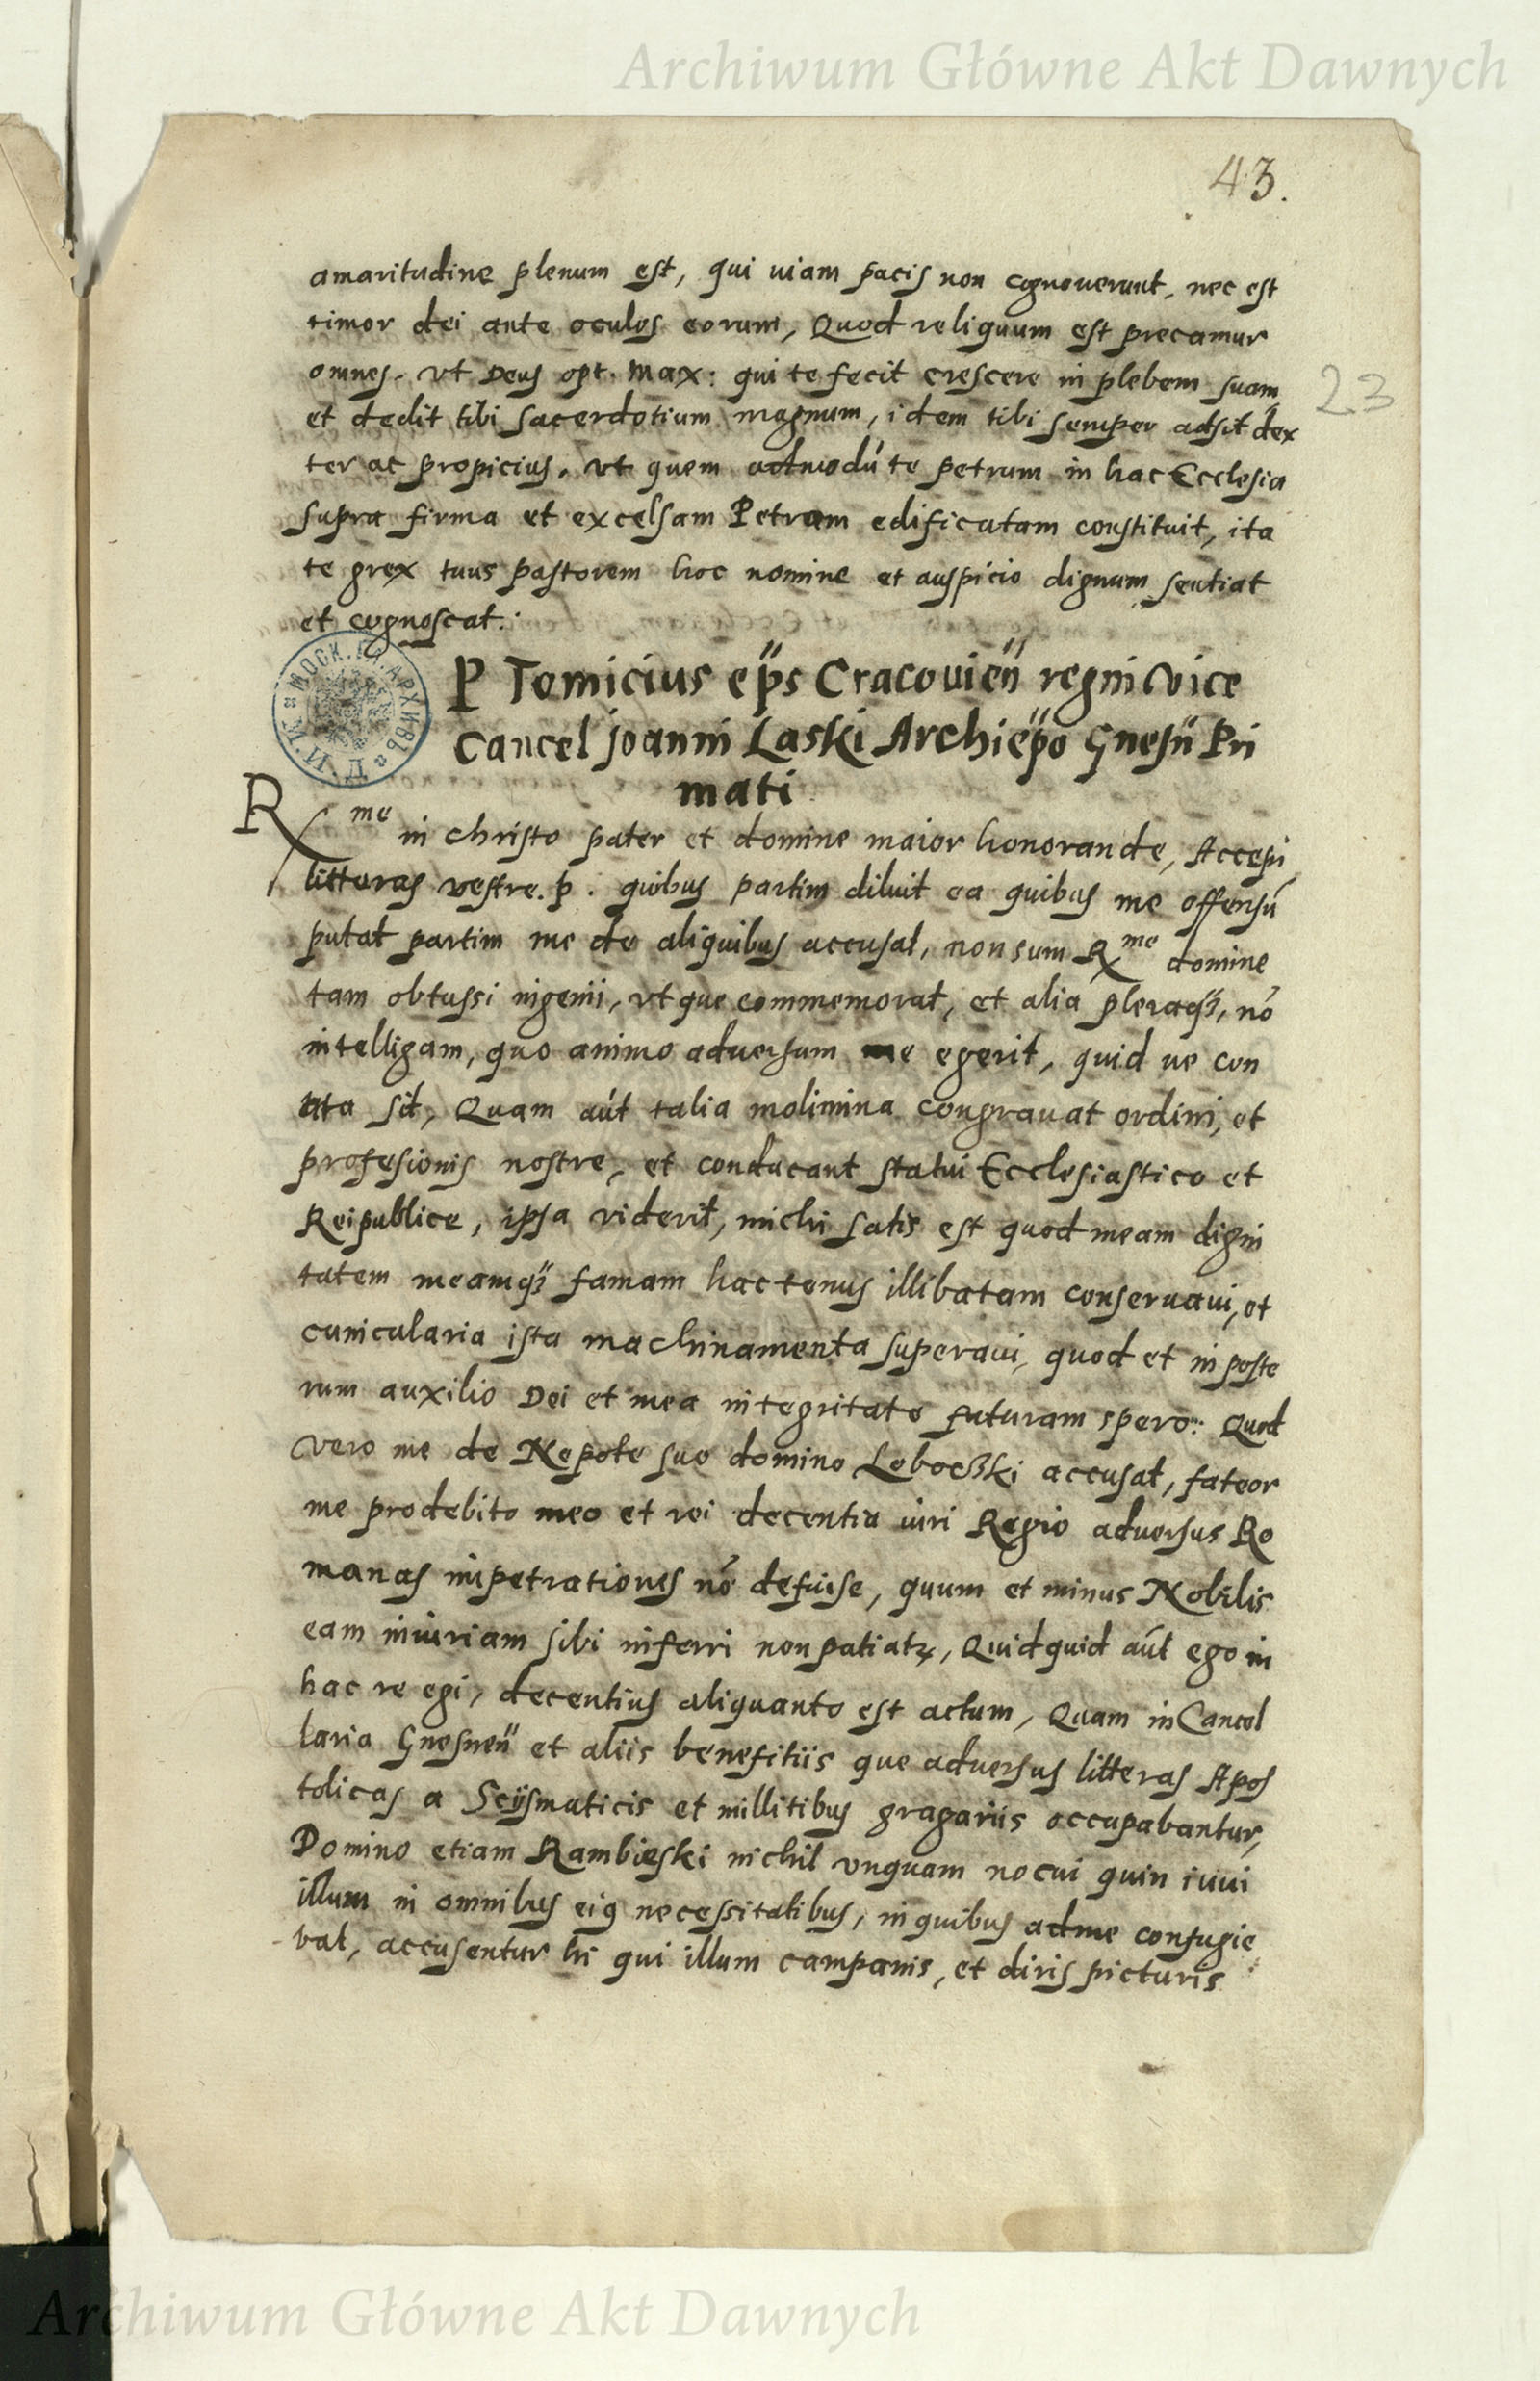 Archiwum Główne Akt Dawnych
43.
amaritudine plenum est, qui uiam pacis non cognouerunt, nec est
timor dei ante oculos eorum, Quod reliquum est precamur
omnes. vt Deus opt. Max: qui te fecit crescere in plebem suam
23
et dedit tibi sacerdotium magnum, idem tibi semper adsit dex
ter ac propicius, vt quem admodú te petrum in hac Ecclesia
supra firma et excelsam Petram edificatam constituit, ita
te grex tuus pastorem hoc nomine et auspicio dignum sentiat
et cognoscat.
P Tomicius ep̃s Cracouieñ regni vice
Cancel Joanni Laski Archiep̃o Gnesñ Pri
mati
Rme in christo pater et domine maior honorande, Accepi
litteras vestre. p. quibus partim diluit ea quibus me offensú
putat partim me de aliquibus accusat, non sum Rme domine
tam obtussi ingenii, vt que commemorat, et alia pleraqȝ, nō
intelligam, quo animo aduersum me egerit, quid ue con
ata sit, Quam aút talia molimina congrauat ordini, et
profesionis nostre, et conducant statui Ecclesiastico et
Reipublice, ipsa viderit, michi satis est quod meam digni
tatem meamqȝ famam hactenus illibatam conseruaui, et
cunicularia ista machinamenta superaui, quod et in poste
rum auxilio Dei et mea integritate futuram spero: Quod
vero me de Nepote suo domino Loboczki accusat, fateor
me pro debito meo et rei decentia iuri Regio aduersus Ro
manas impetrationes nō defuise, quum et minus Nobilis
eam iniuriam sibi inferri non patiatꝛ, Quidquid aút ego in
hac re egi, decentius aliquanto est actum, Quam in Cancel
laria Gnesneñ et aliis benefitiis que aduersus litteras Apos
tolicas a Scysmaticis et millitibus gragariis occupabantur,
Domino etiam Rambieski nichil vnquam nocui quin iuui
illum in omnibus eiꝰ necessitatibus, in quibus ad me confugie
bat, accusentur hi qui illum campanis, et diris picturis
Archiwum Główne Akt Dawnych